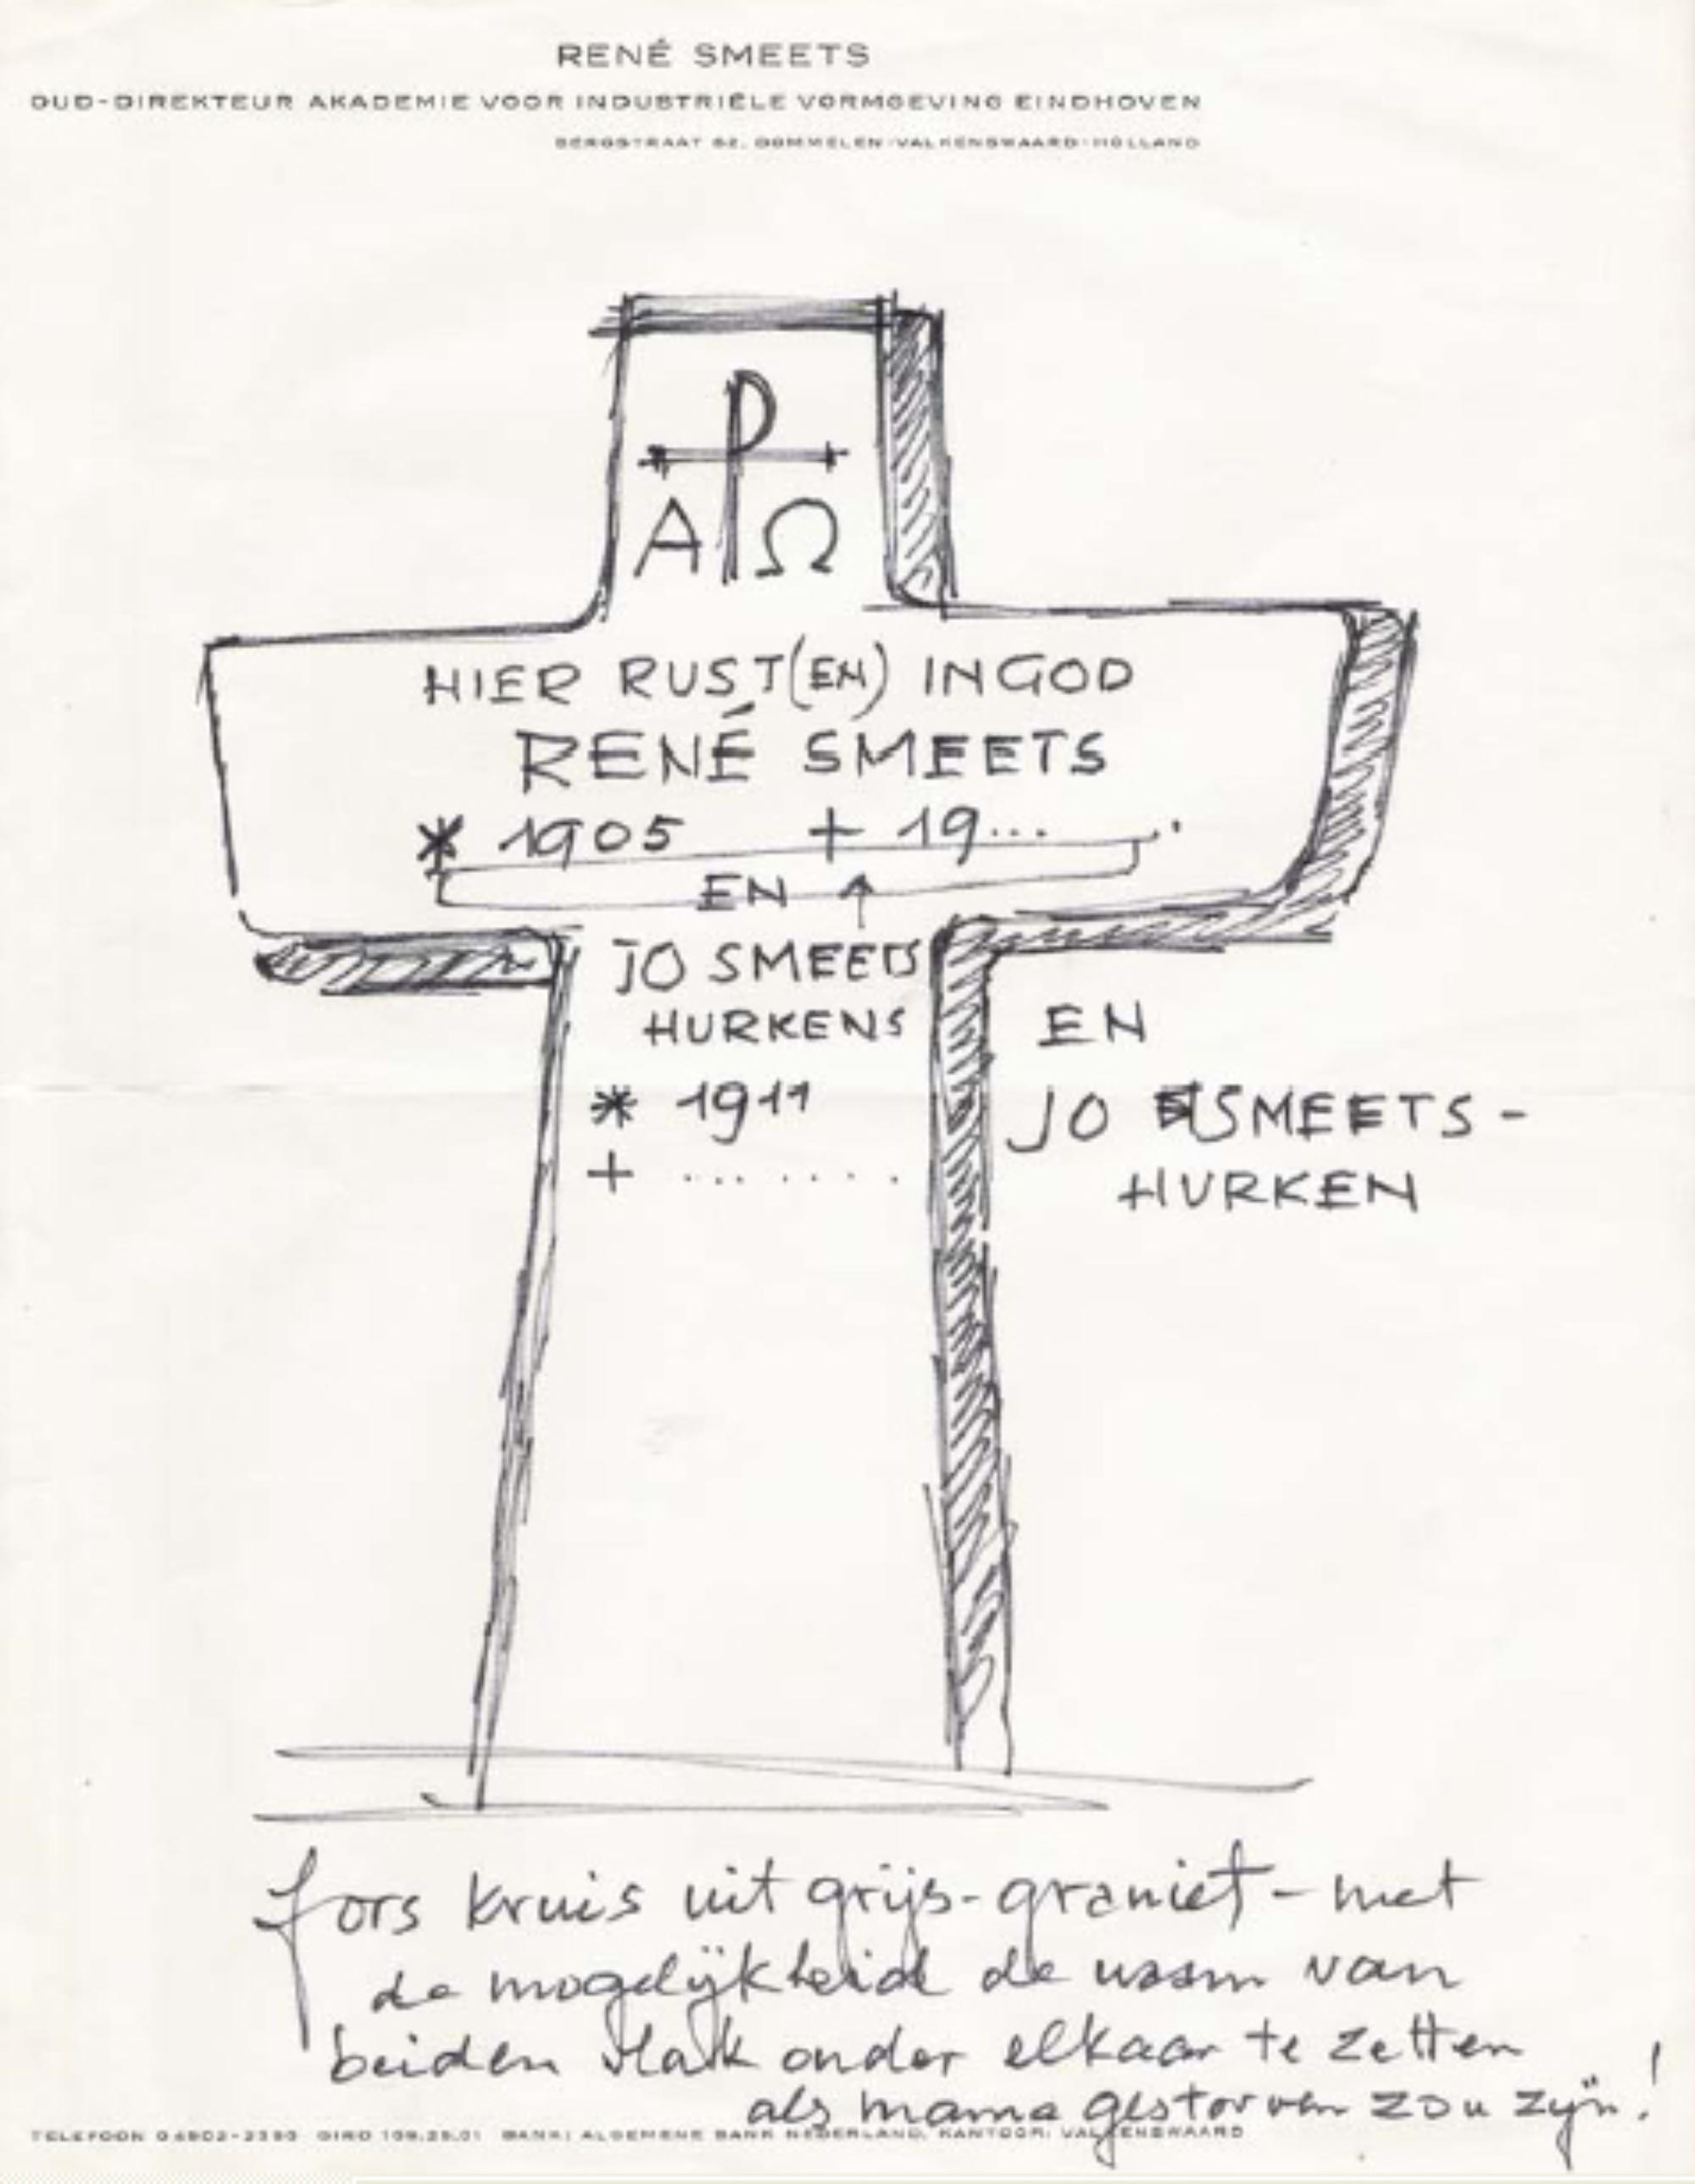 RENÉ SMEETS
OUD-DIREKTEUR AKADEMIE VOOR INDUSTRIËLE VORMGEVING EINDHOVEN
BERGSTRAAT 62, DOMMELEN-VALKENSWAARD-HOLLAND
P
A Ω
HIER RUST(EN) IN GOD
RENÉ SMEETS
* 1905 + 19...
EN ↑
JO SMEETS
HURKENS
* 1911
+ ........
EN
JO SMEETS-
HURKEN
fors kruis uit grijs-graniet - met
de mogelijkheid de naam van
beiden vlak onder elkaar te zetten
als mama gestorven zou zijn!
TELEFOON 04902-2390 GIRO 109.25.01 BANK: ALGEMENE BANK NEDERLAND, KANTOOR: VALKENSWAARD